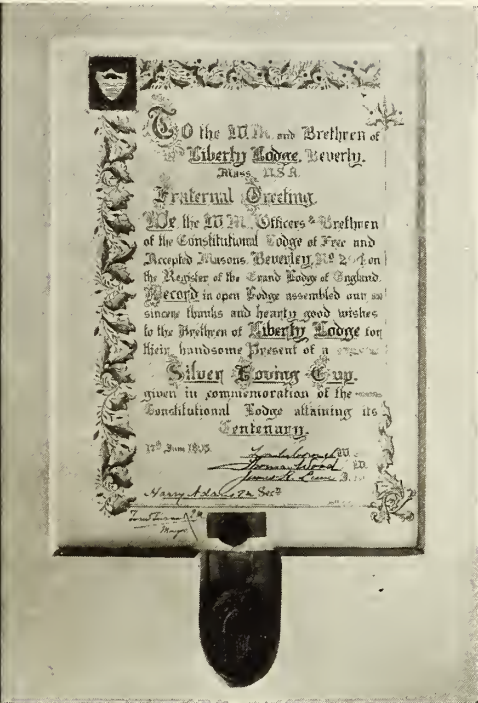 To the W.M. and Brethren of
Liberty Lodge, Beverly,
Mass. U.S.A.
Fraternal Greeting.
We the W.M. Officers & Brethren
of the Constitutional Lodge of Free and
Accepted Masons, Beverley, No 294 on
the Register of the Grand Lodge of England.
Record in open Lodge assembled our
sincere thanks and hearty good wishes
to the Brethren of Liberty Lodge for
their handsome Present of a
Silver Loving Cup.
given in commemoration of the
Constitutional Lodge attaining its
Centenary.
June
Londesborough W.
Thomas Wood
James H.
Harry Adams Sec.
Mayor